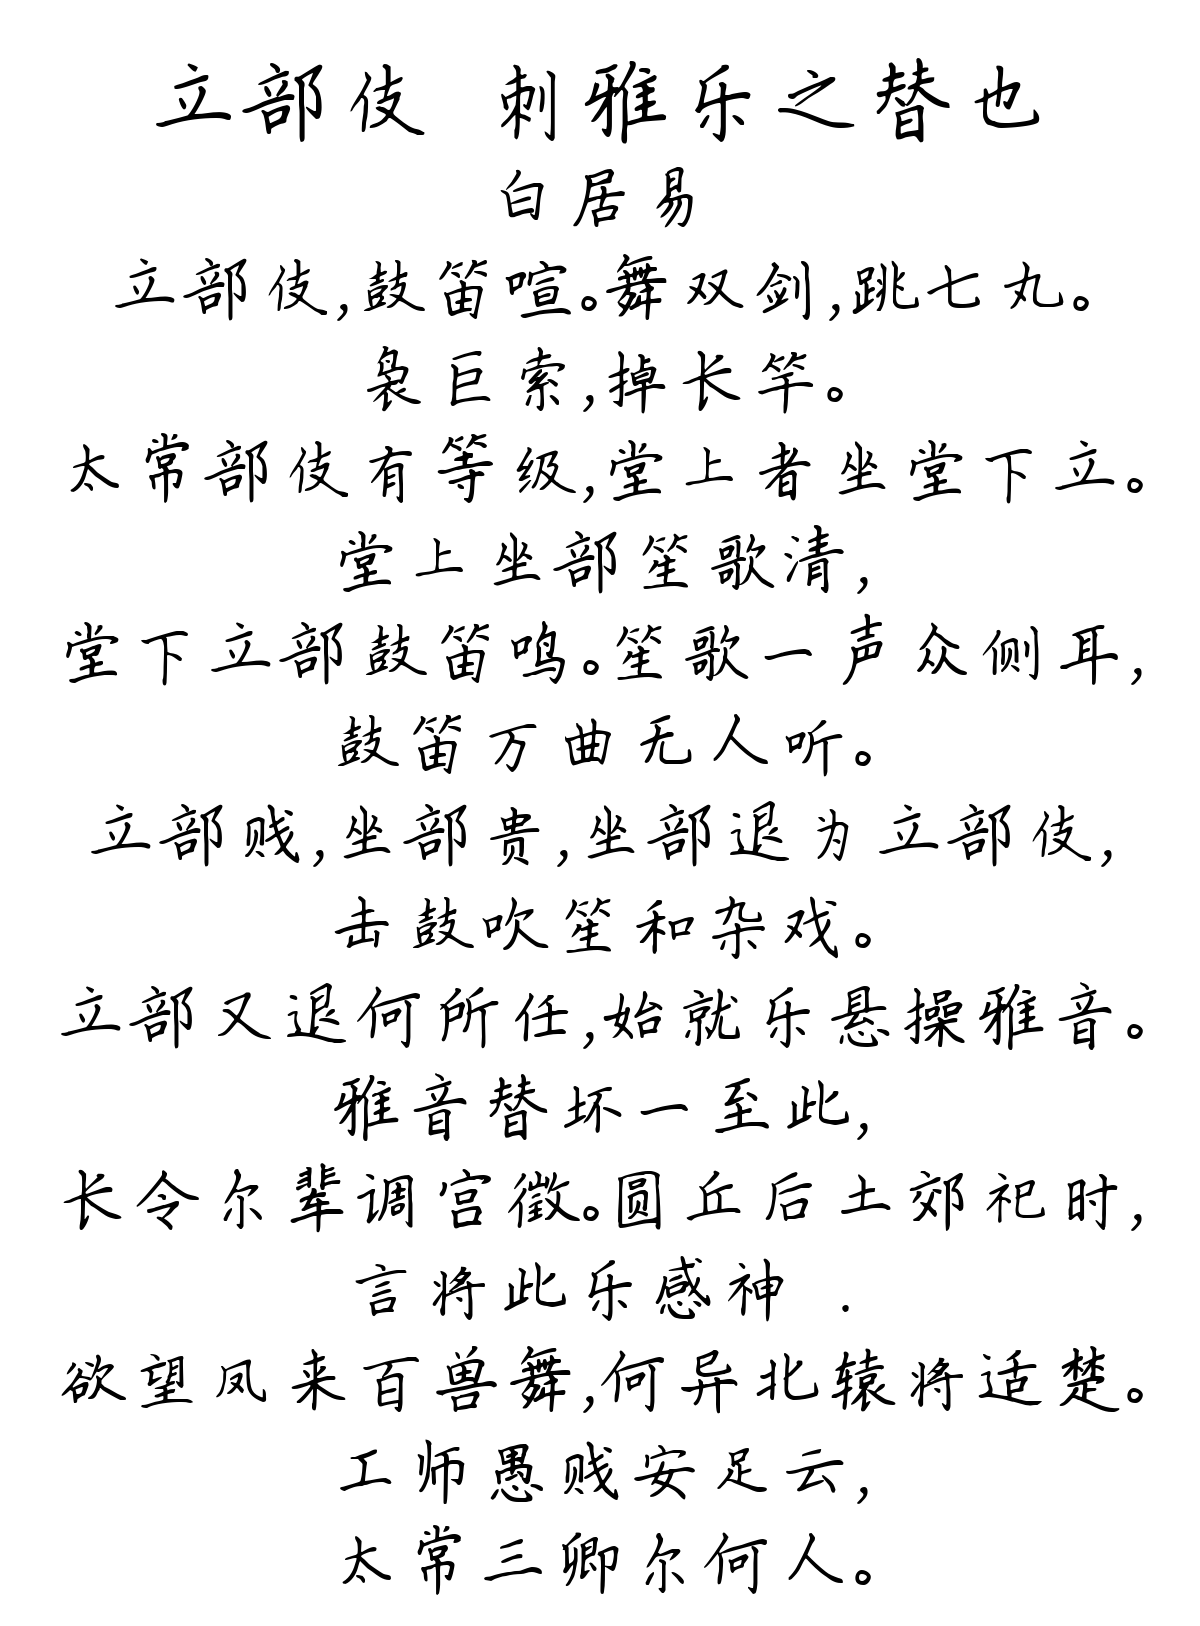 立部伎 刺雅乐之替也
白居易
立部伎,鼓笛喧。舞双剑,跳七丸。
袅巨索,掉长竿。
太常部伎有等级,堂上者坐堂下立。
堂上坐部笙歌清,
堂下立部鼓笛鸣。笙歌一声众侧耳,
鼓笛万曲无人听。
立部贱,坐部贵,坐部退为立部伎,
击鼓吹笙和杂戏。
立部又退何所任,始就乐悬操雅音。
雅音替坏一至此,
长令尔辈调宫徵。圆丘后土郊祀时,
言将此乐感神 .
欲望凤来百兽舞,何异北辕将适楚。
工师愚贱安足云,
太常三卿尔何人。